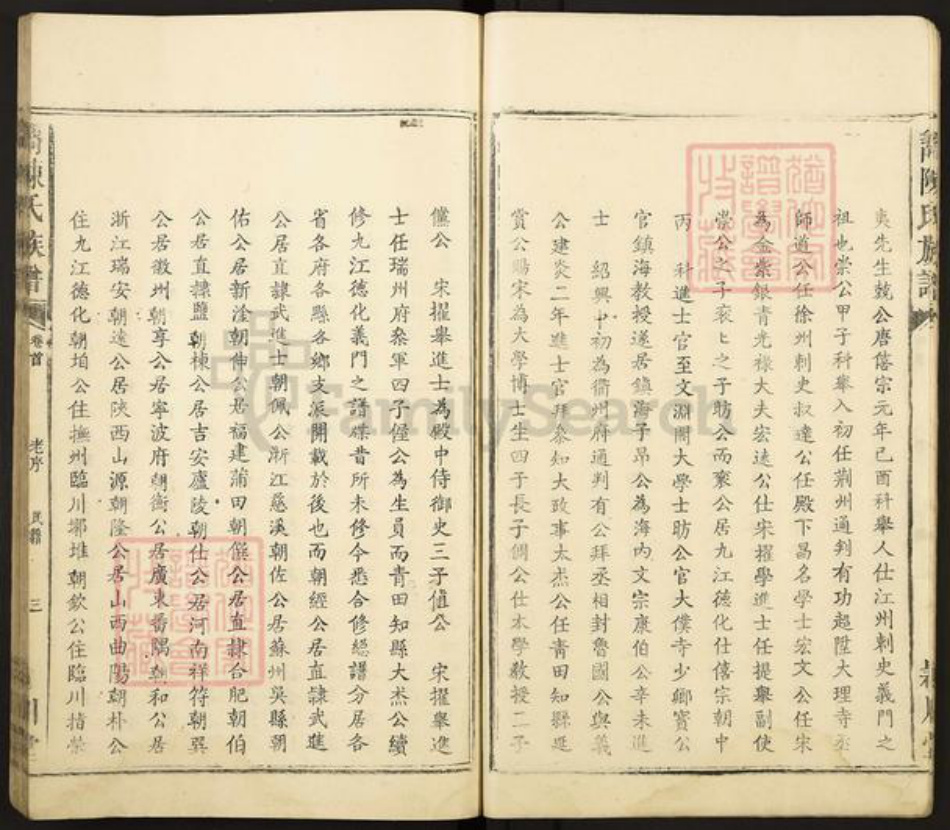 夷先生兢公唐僖宗元年已酉科舉人仕江州刺史義門之
祖也崇公甲子科舉入初任荆州通判有功超陞大理寺丞
師道公任徐州刺史叔達公任殿下昌名學士宏文公任宋
為金紫銀青光祿大夫宏遠公仕宋擢學進士任提舉副使
崇公之子袞匕之子昉公而褒公居九江德化仕僖宗朝中
丙 科進士官至文淵閣大學士昉公官大僕寺少卿賓公
官鎮海教授遂居鎮海子昂公為海内文宗康伯公辛未進
士 紹興中初為衢州府通判有公拜丞相封魯國公與義
公建炎二年進士官拜叅知大政事太杰公任青田知縣延
賞公賜宋為大學博士生四子長子偶公仕本學教授二子
儻公 宋擢舉進士為殿中侍御史三子值公 宋擢舉進
士任瑞州府叅軍四子偓公為生員而青田知縣大杰公續
修九江德化義門之譜牒昔所未修今悉合修總譜分居各
省各府各縣各鄉支派開載於後也而朝經公居直隷武進
公居直隷武進士朝佩公浙江慈溪朝佐公居蘇州吳縣朝
佑公居新淦朝伸公居福建莆田朝僎公居直隷合肥朝伯
公居直隷鹽朝棟公居吉安廬陵朝仕公居河南祥符朝巽
公居徽州朝享公居寧波府朝衡公居廣東番隅朝和公居
浙江瑞安朝遠公居陝西山源朝隆公居山西曲陽朝朴公
住九江德化朝垍公住撫州臨川鄉堆朝欽公住臨川揩萗
陳氏族譜
卷首
老序
三
FamilySearch